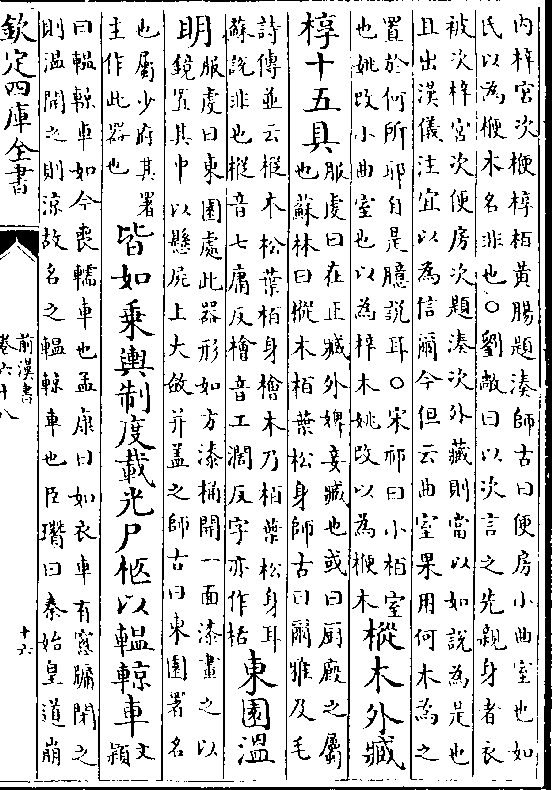 内梓宮次楩椁栢黄腸題湊師古曰便房小曲室也如
氏以為楩木名非也○劉敞曰以次言之先親身者衣
被次梓宮次便房次題湊次外藏則當以如説為是也
且出漢儀注宜以為信爾今但云曲室果用何木為之
置於何所耶自是臆説耳○宋祁曰小栢室
也姚改小曲室也以為梓木姚改以為楩木
樅木外臧
椁十五具
服䖍曰在正臧外婢妾臧也或曰厨廐之屬
也蘇林曰樅木栢葉松身師古曰爾雅及毛
詩傳並云樅木松葉栢身檜木乃栢葉松身耳
蘇説非也樅音七庸反檜音工濶反字亦作栝
東園溫
明
服䖍曰東園處此器形如方漆桶開一面漆畫之以
鏡置其中以懸屍上大斂并蓋之師古曰東園署名
也屬少府其署
主作此器也
皆如乘輿制度載光尸柩以轀輬車
文頴
曰轀輬車如今喪轜車也孟康曰如衣車有窻牖閉之
則溫開之則涼故名之轀輬車也臣瓚曰秦始皇道崩
欽定四庫全書
前漢書
卷六十八
十六